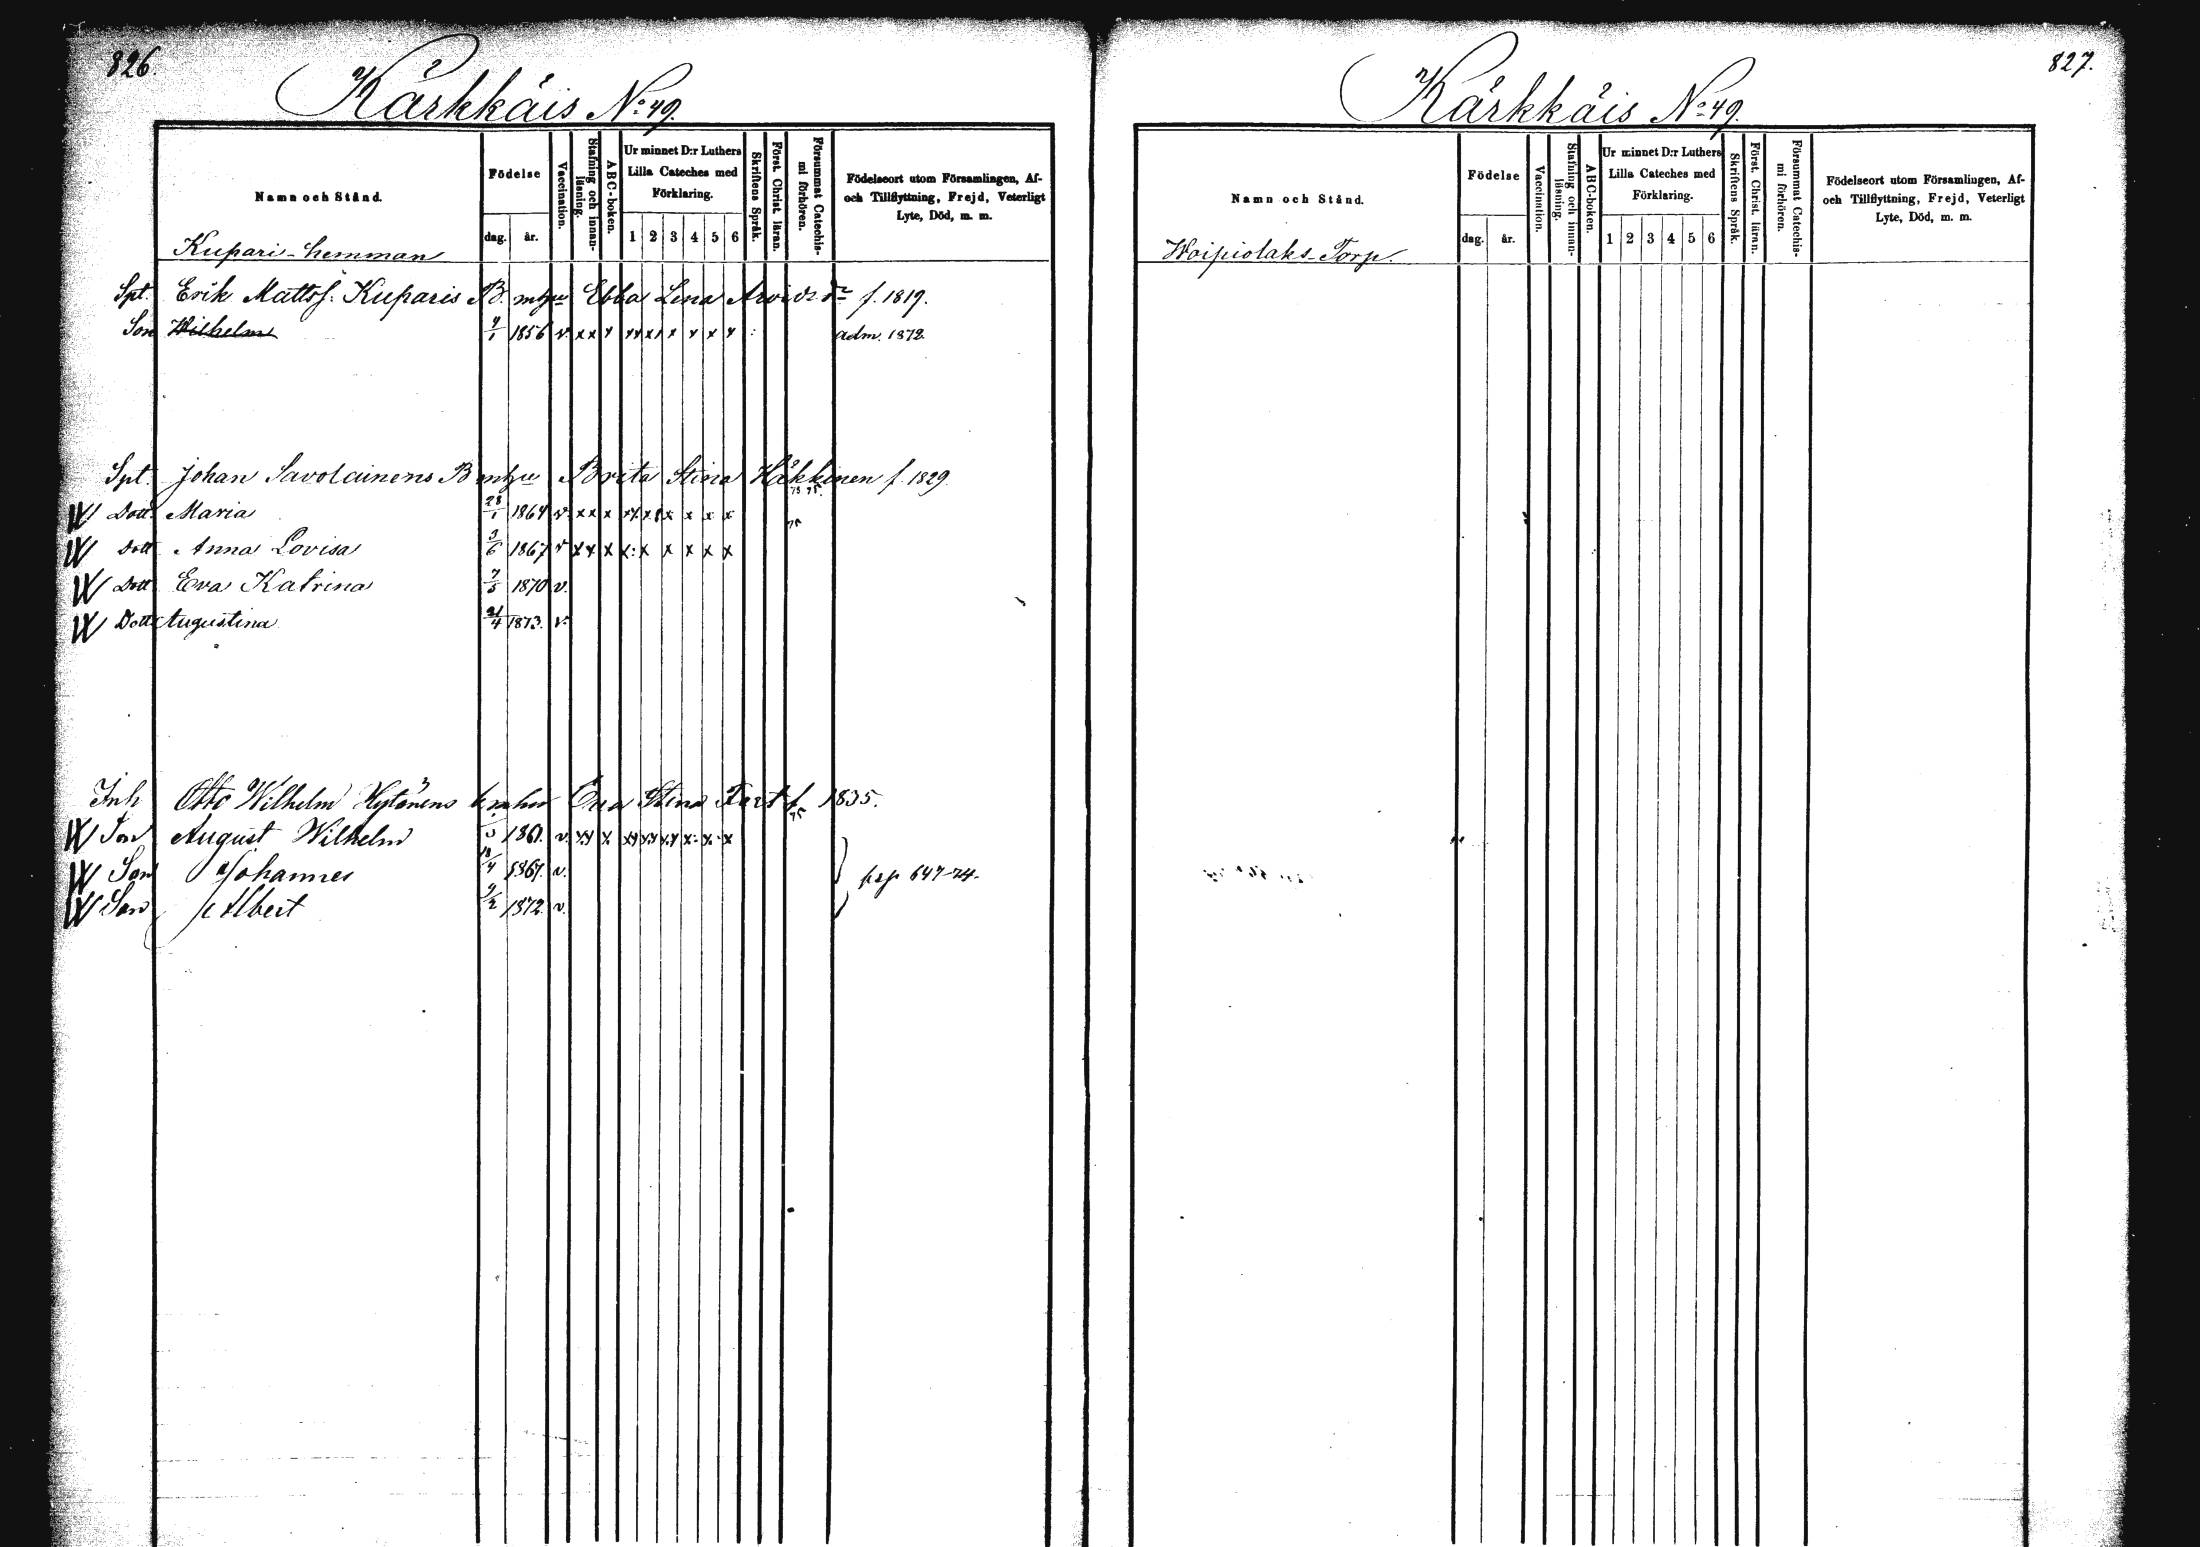 826.
Kärkkäis No 49.
Namn och Stånd.
Födelse
dag. år.
Vaccination.
Stafning och innan-läsning.
ABC-boken.
Ur minnet D:r Luthers
Lilla Cateches med
Förklaring.
1 2 3 4 5 6
Skriftens Språk.
Först. Christ. läran.
Försummat Catechis-mi förhören.
Födelseort utom Församlingen, Af-
och Tillflyttning, Frejd, Veterligt
Lyte, Död, m. m.
Kupari-hemman
Spt. Erik Mattss. Kuparis Ebba Lena f. 1819.
Son Wilhelm 4/1 1856 v. x x x adm. 1872.
Spt. Johan Savolainens B Brita Stina Häkkinen f. 1829
73 75.
W Dott. Maria 28/1 1864 v. x x x
75
W Dott Anna Lovisa 3/6 1867 v x x x x: x x x x x
W Dott Eva Katrina 7/5 1870 v.
W Dott Augustina 21/4 1873. v.
Inh Otto Wilhelm Hytönens Eva Stina f 1835.
75
W Son August Wilhelm 1861. v.
W Son Johannes 1867. v.
W Son Albert 9/2 1872. v.
647-74.
827.
Kärkkäis No 49.
Namn och Stånd.
Födelse
dag. år.
Vaccination.
Stafning och innan-läsning.
ABC-boken.
Ur minnet D:r Luthers
Lilla Cateches med
Förklaring.
1 2 3 4 5 6
Skriftens Språk.
Först. Christ. läran.
Försummat Catechis-mi förhören.
Födelseort utom Församlingen, Af-
och Tillflyttning, Frejd, Veterligt
Lyte, Död, m. m.
Woipiolaks-Torp.